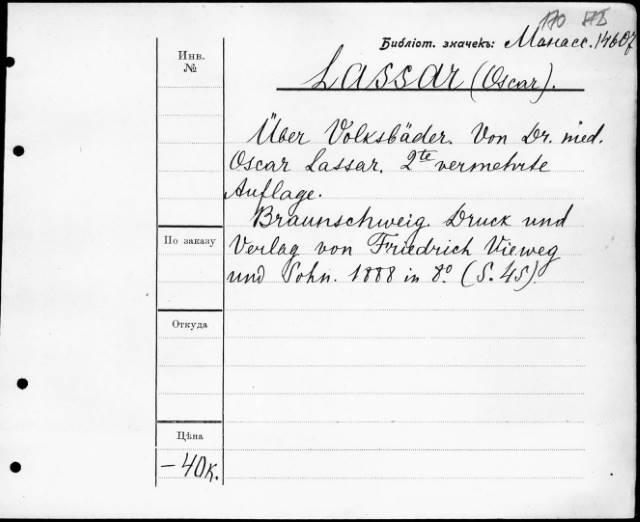 170
Библіот. значекъ: Манасс. 14607
Инв.
№
Lassar (Oscar).
Über Volksbäder. Von Dr. med.
Oscar Lassar. 2te vermehrte
Auflage.
Braunschweig. Druck und
Verlag von Friedrich Vieweg
und Sohn. 1888 in 8º. (S. 45).
По заказу
Откуда
Цѣна
– 40 к.